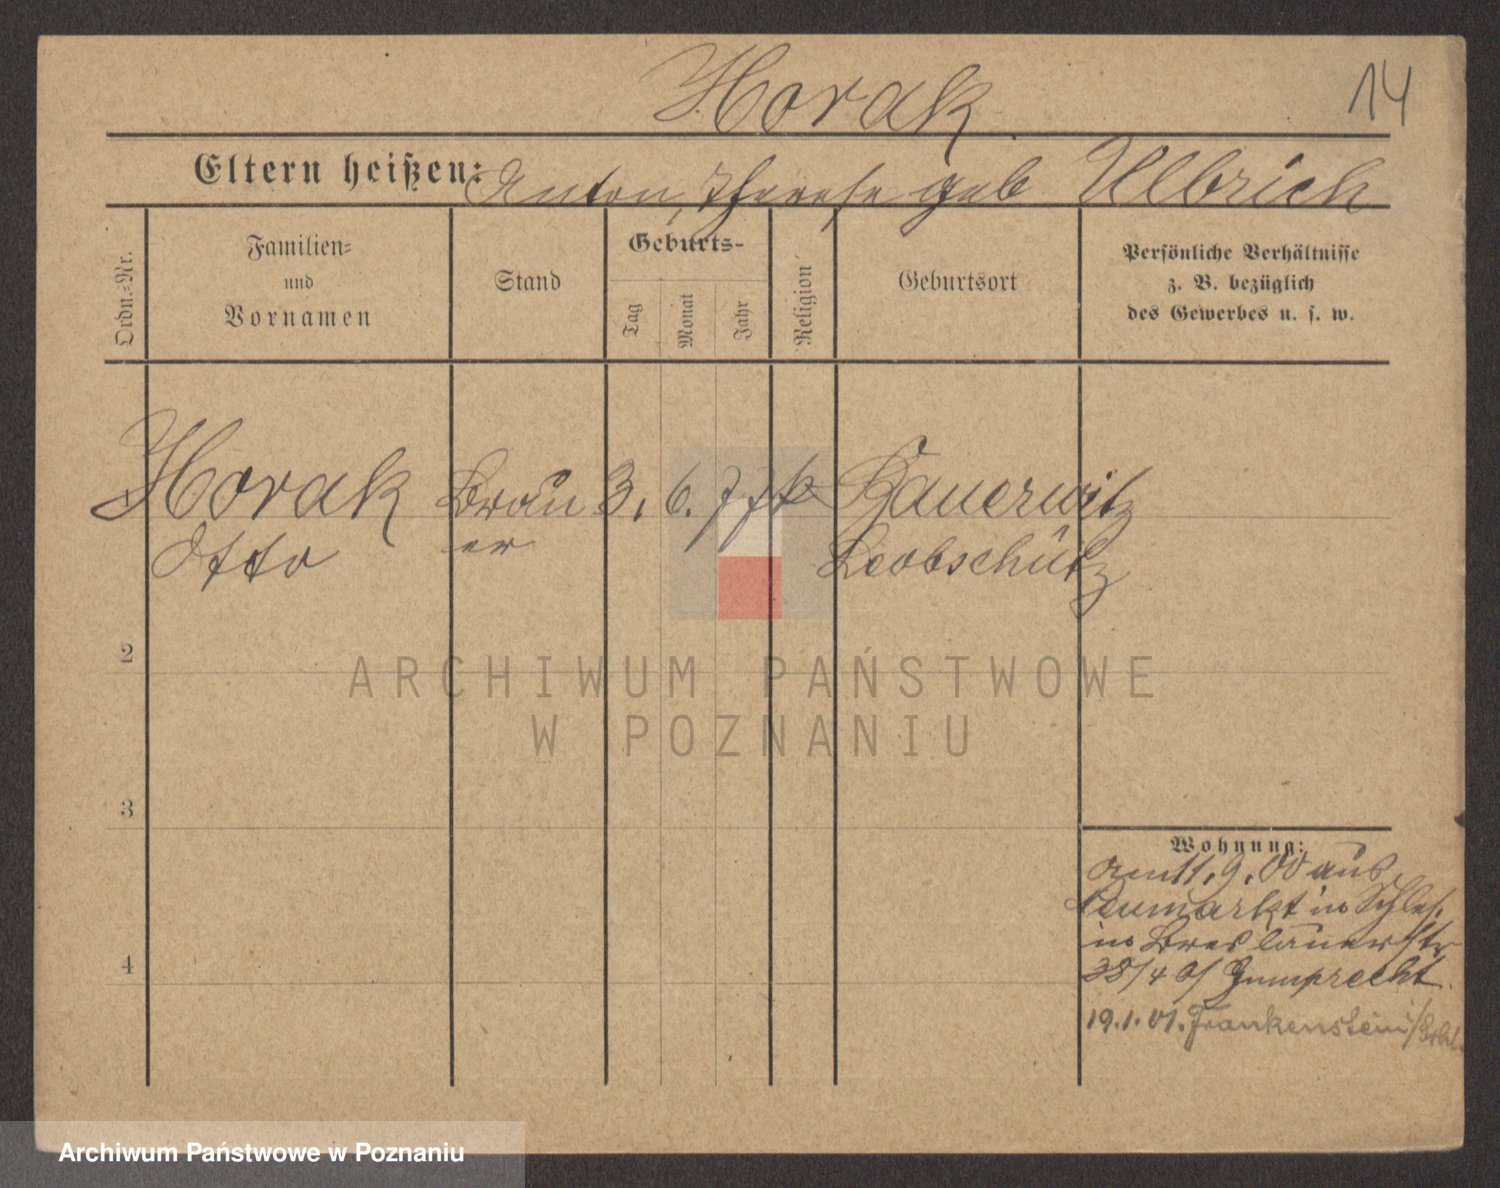 Horak
14
Eltern heißen: Anton, Therese geb Ulbrich
Ordn.=Nr.
Familien=
und
Vornamen
Stand
Geburts-
Tag
Monat
Jahr
Religion
Geburtsort
Persönliche Verhältnisse
z. B. bezüglich
des Gewerbes u. s. w.
Horak Brau 3. 6. 77 k Bauerwitz
Otto er Leobschütz
2
3
4
Wohnung:
am 11.9.00 aus
Neumarkt in Schles.
in Breslauerstr
38/40 b/ Gumprecht.
19.1.01. Frankenstein/Schl.
ARCHIWUM PAŃSTWOWE
W POZNANIU
Archiwum Państwowe w Poznaniu